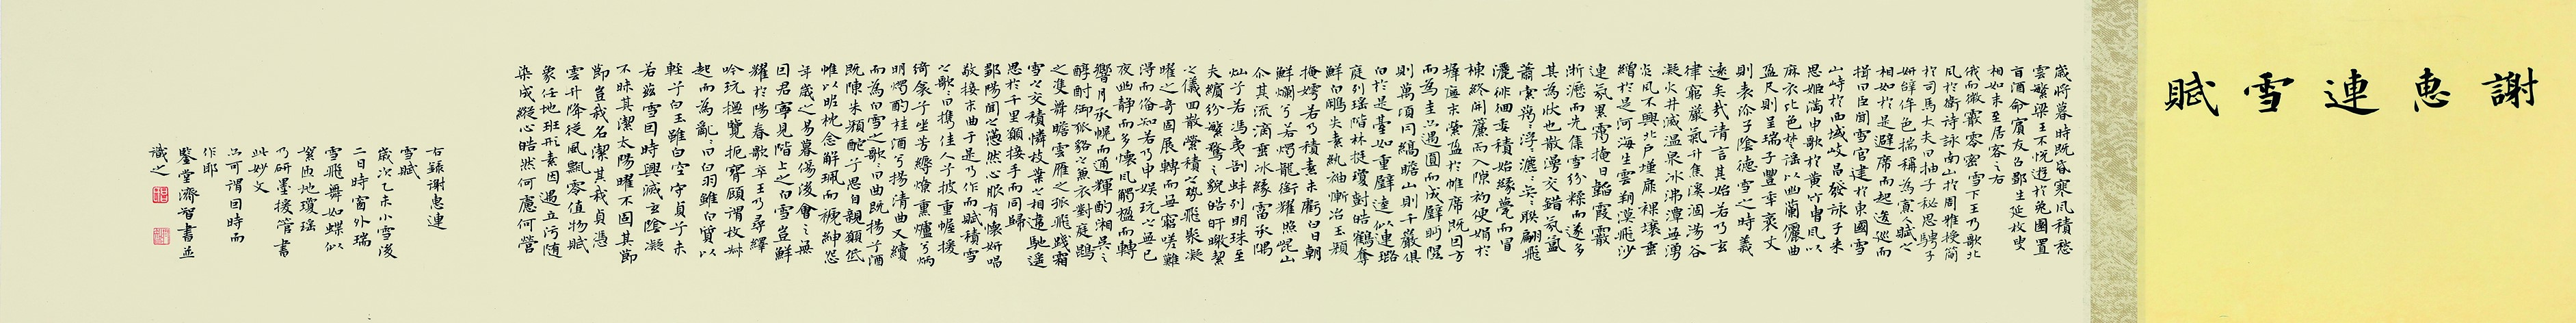 謝惠連雪賦
歲將暮時既昏寒風積愁
雲繁梁王不悅遊於兔園置
旨酒命賓友召鄒生延枚叟
相如末至居客之右
俄而微霰零密雪下王乃歌北
風於衛詩詠南山於周雅授簡
於司馬大夫曰抽子秘思騁子
妍辭侔色揣稱為寡人賦之
相如於是避席而起逡巡而
揖曰臣聞雪宮建於東國雪
山峙於西域岐昌發詠于來
思姬滿申歌於黃竹曹風以
麻衣比色楚謠以幽蘭儷曲
盈尺則呈瑞于豐年袤丈
則表沴于陰德雪之時義
遠矣哉請言其始若乃玄
律窮嚴氣升焦溪涸湯谷
凝火井滅溫泉冰沸潭無湧
炎風不興北戶墐扉裸壤垂
繒於是河海生雲朔漠飛沙
連氛累靄掩日韜霞霰
淅瀝而先集雪紛糅而遂多
其為狀也散漫交錯氛氳
蕭索藹〻浮〻瀌〻弈〻聯翩飛
灑徘徊委積始緣甍而冒
棟終開簾而入隙初便娟於
墀廡末縈盈於帷席既因方
而為圭亦遇圓而成璧眄隰
則萬頃同縞瞻山則千巖俱
白於是臺如重璧逵似連璐
庭列瑤階林挺瓊樹皓鶴奪
鮮白鷴失素紈袖慚冶玉顏
掩嫮若乃積素未虧白日朝
鮮爛兮若燭龍銜耀照崑山
尒其流滴垂冰緣霤承隅
燦兮若馮夷剖蚌列明珠至
夫繽紛繁鶩之貌皓旰曒絜
之儀迴散縈積之勢飛聚凝
曜之奇固展轉而無窮嗟難
得而備知若乃申娛玩之無已
夜幽靜而多懷風觸楹而轉
響月承幌而通輝酌湘吳之
醇酎御狐貉之兼衣對庭鵾
之雙舞瞻雲雁之孤飛踐霜
雪之交積憐枝葉之相違馳遙
思於千里願接手而同歸
鄒陽聞之懣然心服有懷妍唱
敬接末曲于是乃作而賦積雪
之歌〻曰攜佳人兮披重幄援
綺衾兮坐芳縟燎熏爐兮炳
明燭酌桂酒兮揚清曲又續
而為白雪之歌〻曰曲既揚兮酒
既陳朱顏酡兮思自親願低
帷以昵枕念解珮而褫紳怨
年歲之易暮傷後會之無
因君寧見階上之白雪豈鮮
耀於陽春歌卒王乃尋繹
吟玩撫覽扼腕顧謂枚叔
起而為亂〻曰白羽雖白質以
輕兮白玉雖白空守貞兮未
若茲雪因時興滅玄陰凝
不昧其潔太陽曜不固其節
節豈我名潔其我貞憑
雲升降從風飄零值物賦
象任地班形素因遇立污隨
染成縱心皓然何慮何營
右錄謝惠連
雪賦
歲次乙未小雪後
二日時窗外瑞
雪飛舞如蝶似
絮匝地瓊瑤
乃研墨援管書
此妙文
亦可謂因時而
作耶
鑒堂濟智書並
識之